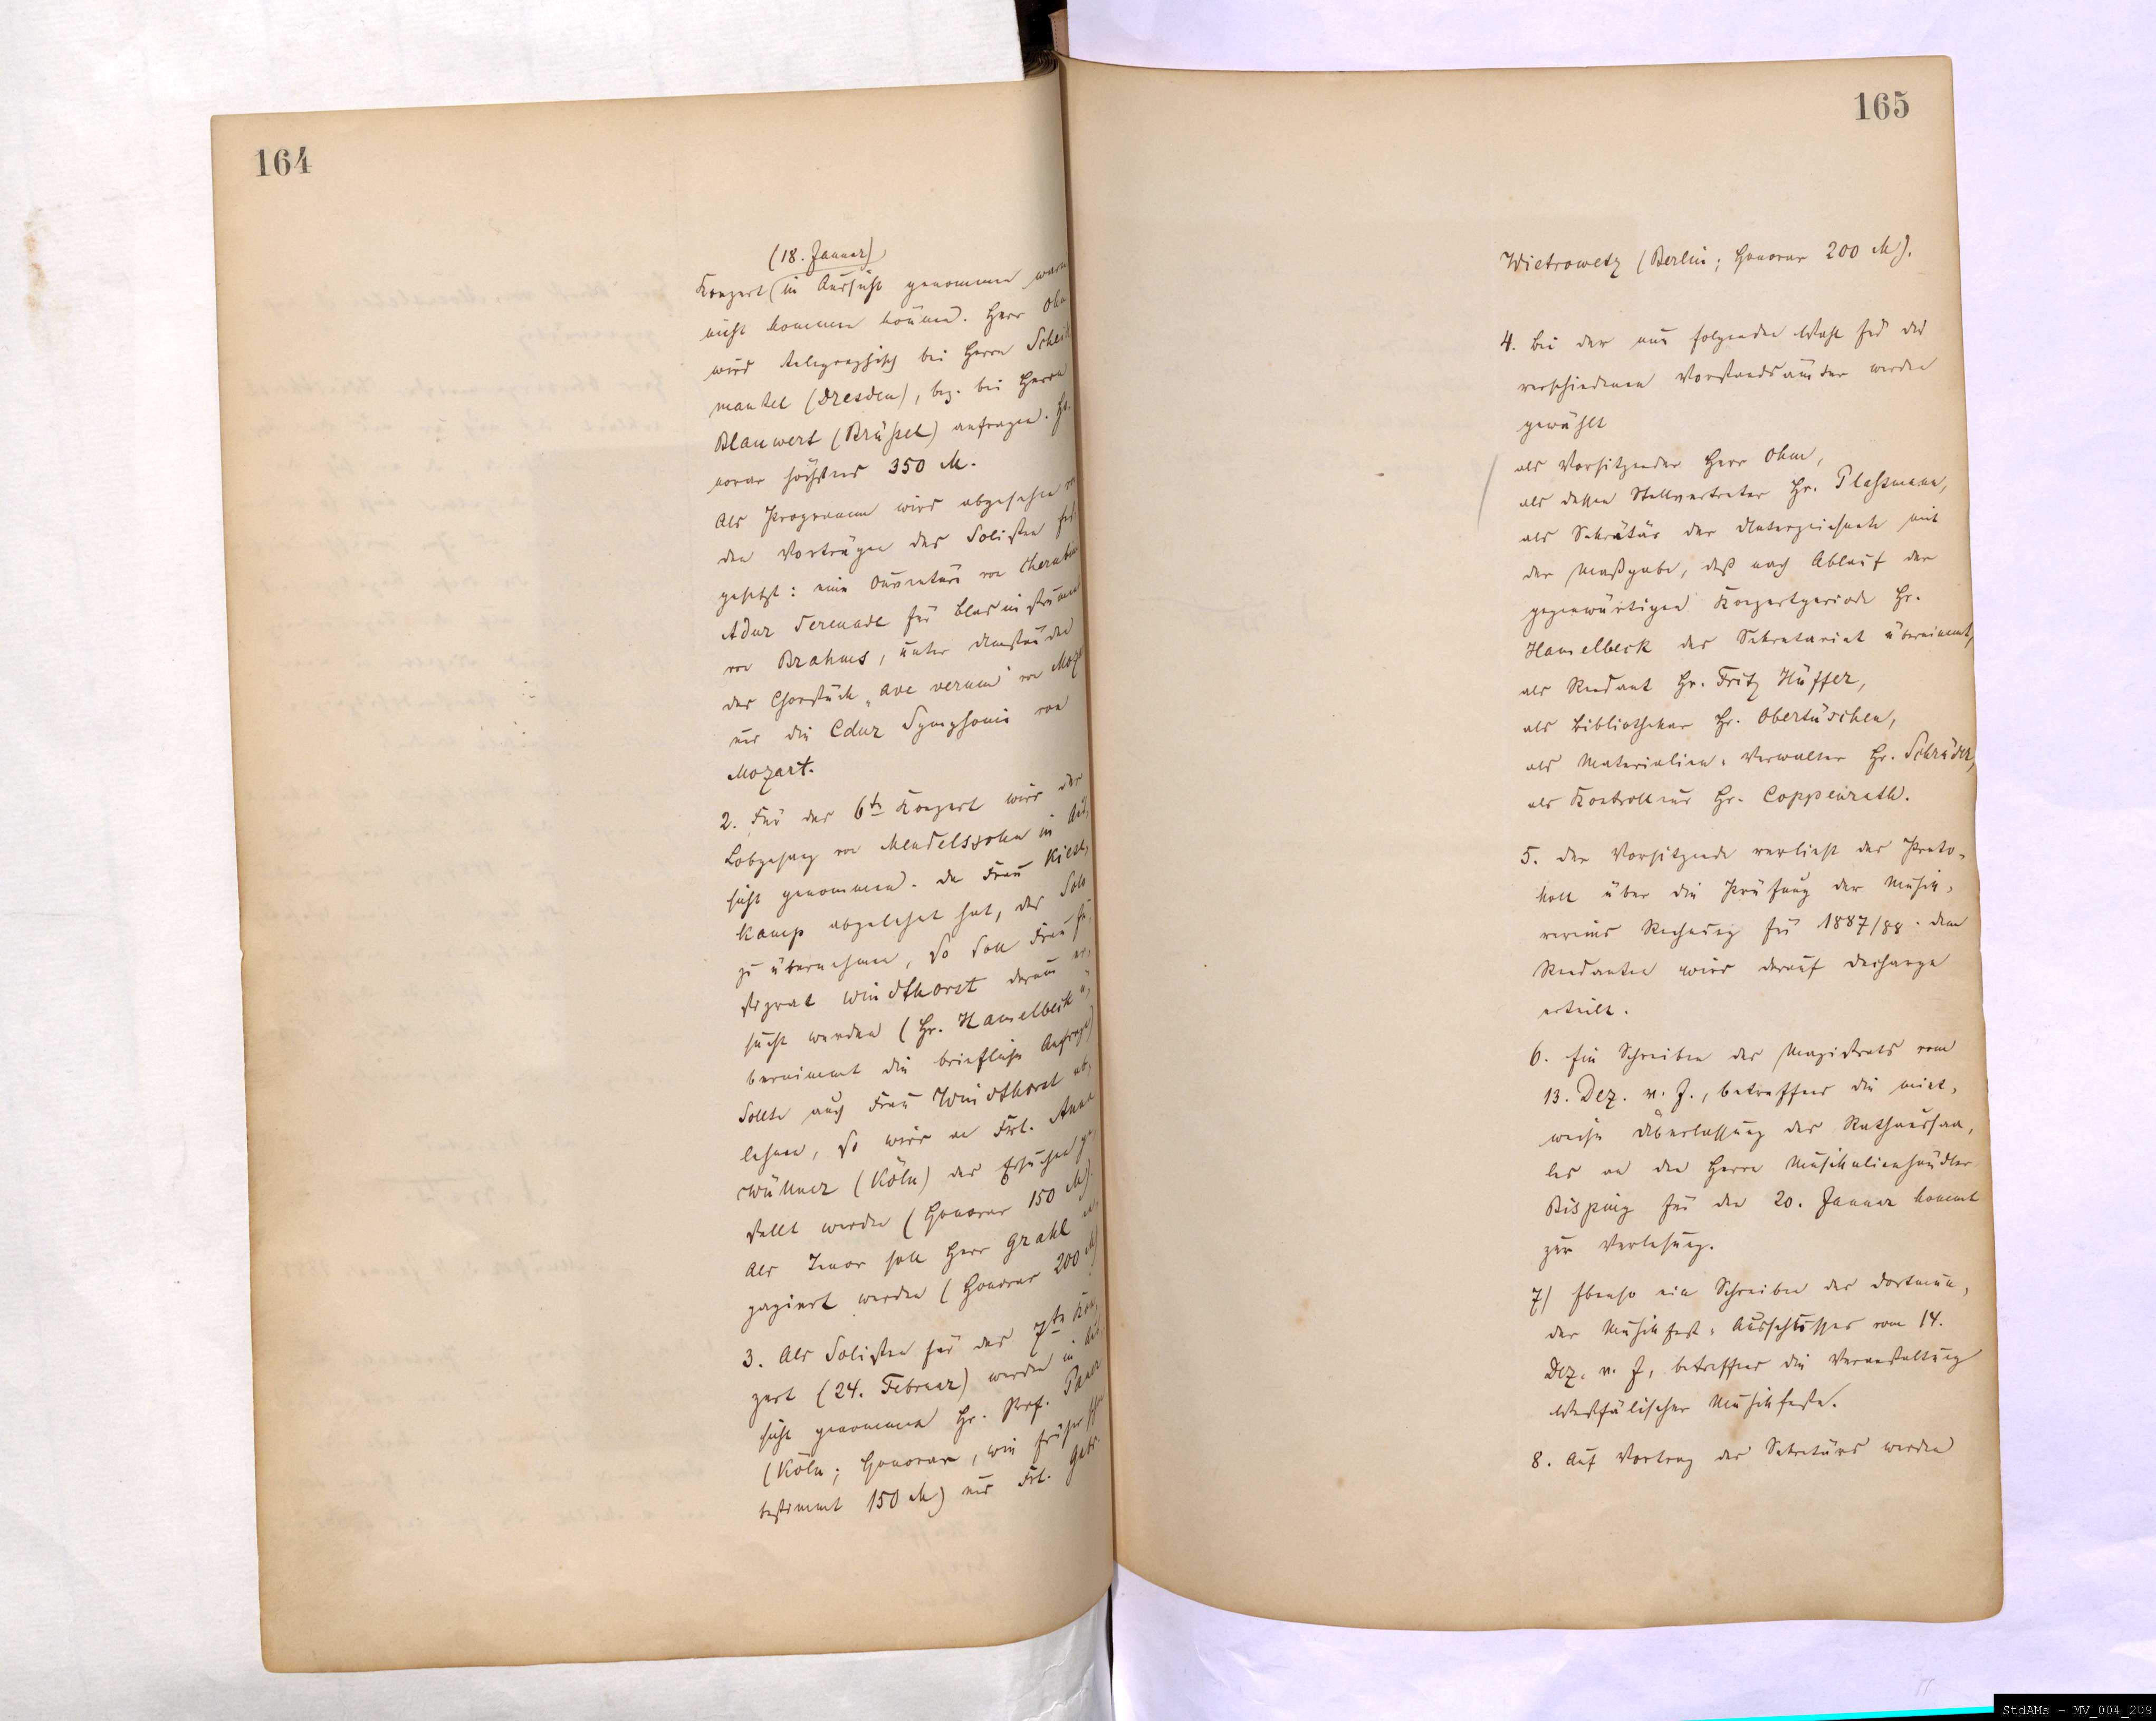 164
(18. Januar)
Konzert in Aussicht genommen waren
nicht kommen können. Herr Ohm
wird telegraphisch bei Herrn Scheide
mantel (Dresden), bez. bei Herrn
Blauwert (Brüssel) anfragen. Ho
norar höchstens 350 M.
Als Programm wird abgesehen von
den Vorträgen des Solisten fest
gesetzt: eine Ouverture von Cherubini
Adur Serenade für Blasinstrumente
von Brahms, unter Umständen
das Chorstück „ave verum" von Mozart
und die Cdur Symphonie von
Mozart.
2. Für das 6te Konzert wird der
Lobgesang von Mendelssohn in Aus,
sicht genommen. Da Frau Kiese,
kamp abgelehnt hat, das Solo
zu übernehmen, so soll Frau
Windthorst darum er,
sucht werden (Hr. Hamelbeck ü,
bernimmt die briefliche Anfrage)
Sollte auch Frau Windthorst ab,
lehnen, so wird an Frl. Anna
Wüllner (Köln) das Ersuchen ge,
stellt werden (Honorar 150 M).
Als Tenor soll Herr Grahl en,
gagiert werden (Honorar 200 M)
3. Als Solisten für das 7te Kon,
zert (24. Februar) werden in Aus,
sicht genommen Hr. Prof. Pauer
(Köln; Honorar, wie früher schon
bestimmt 150 M) und Frl. Gabr.
165
Wietrowetz (Berlin; Honorar 200 M).
4. Bei der nun folgenden Wahl für die
verschiedenen Vorstandsämter werden
gewählt
als Vorsitzender Herr Ohm,
als dessen Stellvertreter Hr. Plaßmann,
als Sekretär der Unterzeichnete mit
der Maßgabe, daß nach Ablauf der
gegenwärtigen Konzertperiode Hr.
Hamelbeck das Sekretariat übernimmt,
als Rendant Hr. Fritz Hüffer,
als Bibliothekar Hr. Obertüschen,
als Materialien-Verwalter Hr. Schräder,
als Kontrolleur Hr. Coppenrath.
5. Der Vorsitzende verliest das Proto,
koll über die Prüfung der Musik,
vereins Rechnung für 1887/88. Dem
Rendanten wird darauf Decharge
erteilt.
6. Ein Schreiben des Magistrats vom
13. Dez. v. J., betreffend die miet,
weise Überlassung des Rathaussaa,
les an den Herrn Musikalienhändler
Bisping für den 20. Januar kommt
zur Verlesung.
7) Ebenso ein Schreiben des Dortmun,
der Musikfest-Ausschusses vom 14.
Dez. v. J., betreffend die Veranstaltung
Westfälischer Musikfeste.
8. Auf Vortrag des Sekretärs werden
StdAMs - MV_004_209